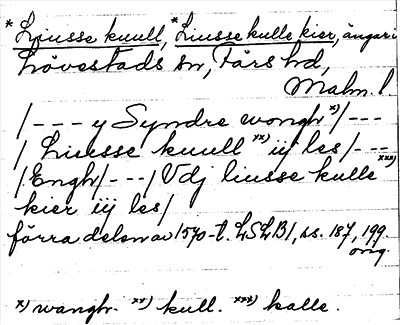 *Liusse kuull, *Liusse kulle kier, ängar i
Lövestads sn, Färs hd,
Malm. l.
/--- y Syndre wongh x)/---
/ Liusse kuull xx) iij les/---
/Engh/---/ Vdj liusse kulle xxx)
kier iij les/
förra delen av 1570-t. LSLB1, ss. 187, 199
orig.
x) wangh. xx) kull. xxx) kalle.